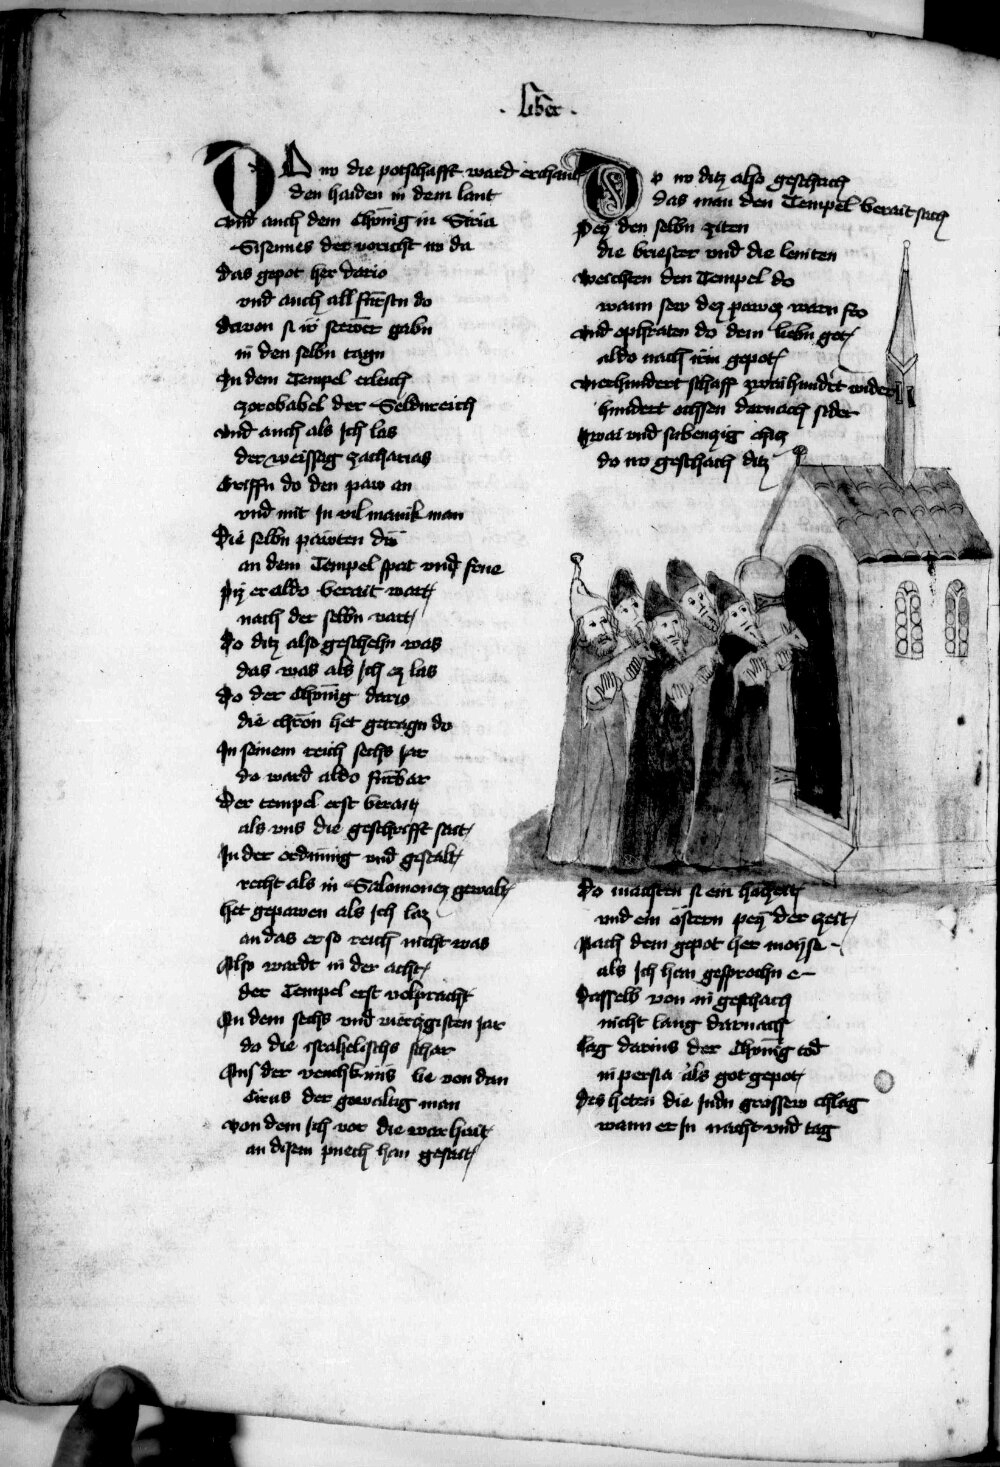 . Liber .
Do nv die potschafft ward erchant
den haiden in dem lant
vnd auch dem Chönig in Siria
Sisennes der voricht nv da
das gepot her dario
vnd auch all fürsten do
davon si iv stewer gabn
in den selbn tagn
In dem Tempel erleich
zorobabel der Seldnreich
vnd auch als Ich las
der weissag zacharias
Griffn do den paw an
vnd mit In vil manik man
Die selbn pawten do
an dem Tempel spat vnd frue
Piz er aldo berait wart
nach der selbn vart
Do ditz also geschehn was
das was als Ich ez las
Do der Chönig dario
die chron het getragn do
In seinem reich sechs Jar
do ward aldo fürbar
Der tempel erst berait
als vns die geschrifft seit
In der ordnung vnd gestalt
recht als in Salomonez gewalt
het gepawen als Ich laz
an das er so reich nicht was
Also wardt in der acht
der Tempel erst volpracht
In dem sechs vnd vierzigisten Jar
do die israhelischs schar
Aus der vench&#107;nüs lie von dan
Cirus der gewaltig man
von dem Ich vor die warhait
an disem puech han geseit
Do nv ditz also geschach
das man den Tempel berait sach
Pey den selbn ziten
die briester vnd die leuiten
weichten den Tempel do
wann sew dez pawez warn fro
vnd ophraten do dem liebn got
aldo nach irm gepot
vierhundert schaff zwaihundert wider
hundert ochssen darnach sider
zwai vnd subenzig chiz
do nv geschach ditz
Do machten si ein hochzeit
vnd ein östern pey der zeit
Nach dem gepot her moyse
als Ich han gesprochn e
Dasselb von in geschach
nicht lang darnach
lag darius der Chönig tod
in persia als got gepot
des heten die Judn grossew chlag
wann er In nacht vnd tag